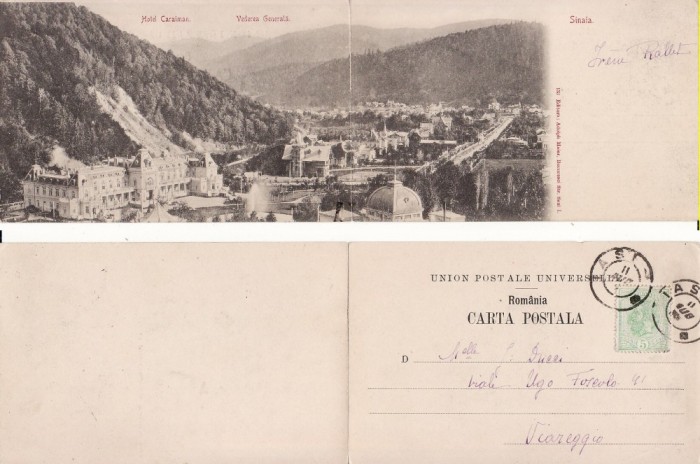 Hotel Caraiman.   Vederea Generală.   Sinaia.
Irène Rallet
UNION POSTALE UNIVERSELLE
România
CARTA POSTALA
D Melle Ducci
viale Ugo Foscolo 41
Viareggio
IASI
11
IASI
11
AUG
5